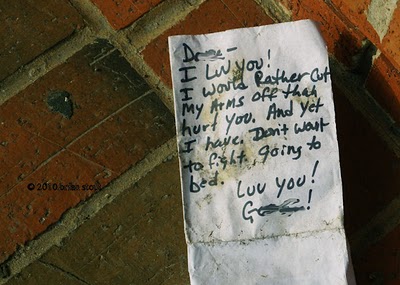 I LUV YOU!
I would Rather Cut
My Arms off than
hurt you. And yet
I have. Don't want
to fight, going to
bed. Luv you!
© 2010